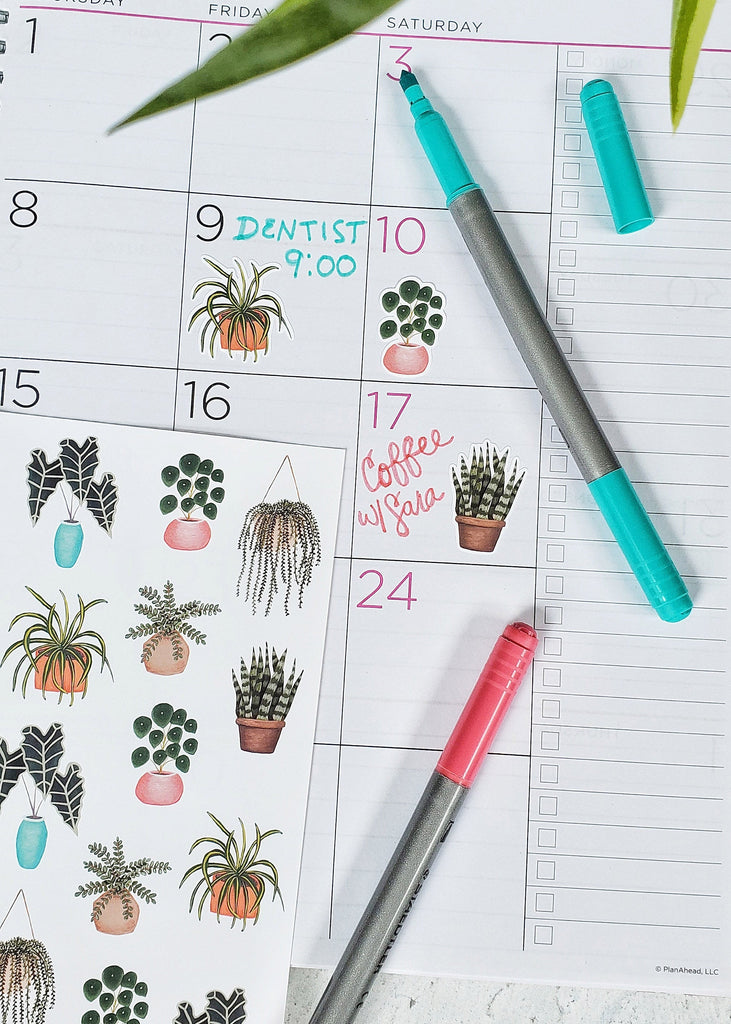 FRIDAY
SATURDAY
1
3
8
9
DENTIST
9:00
10
15
16
17
Coffee
w/ Sara
24
© PlanAhead, LLC